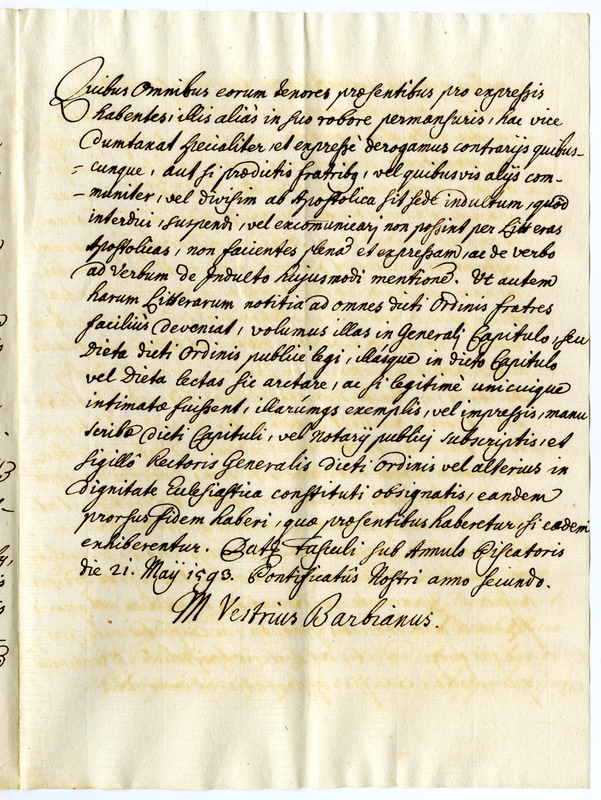 Quibus Omnibus eorum tenores præsentibus pro expressis
habentes, illis aliàs in suo robore permansuris, hac vice
dumtaxat specialiter, et expressè derogamus contrarijs quibus-
=cunque, aut si prædictis fratribꝫ, vel quibusvis alijs com-
-muniter, vel divisim ab Apostolica sit sede indultum, quod
interdici, suspendi, vel excomunicarj non possint per Litteras
Apostolicas, non facientes plenã et expressam, ac de verbo
ad Verbum de Indulto hujusmodi mentionẽ. Ut autem
harum Litterarum notitia ad omnes dicti Ordinis fratres
faciliùs deveniat, volumus illas in Generalj Capitulo, seu
Dieta dicti Ordinis publicè legi, illasque in dicto Capitulo
vel Dieta lectas sic arctare, ac si legitimè unicuique
intimatæ fuissent, illarúmqs exemplis, vel impressis, manu
scribæ dicti Capituli, vel notarij publicj subscriptis, et
sigillô Rectoris Generalis dicti Ordinis vel alterius in
dignitate Ecclesiastica constituti obsignatis, eandem
prorsus fidem haberi, quæ præsentibus haberetur, si eædem
exhiberentur. Datꝫ Tusculi sub Annulo Piscatoris
die 21. Maij 1593. Pontificatûs Nostri anno secundo.
M Vestrius Barbianus.